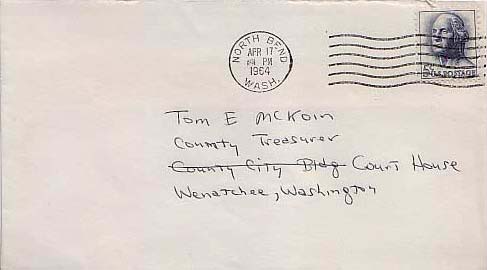 NORTH BEND
APR 17
PM
1964
WASH.
5c U.S. POSTAGE
Tom E McKoin
County Treasurer
~~County City Bldg~~ Court House
Wenatchee, Washington